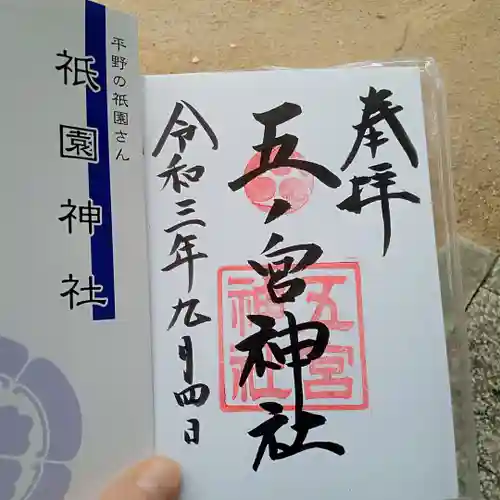 奉拝
五ノ宮神社
令和三年九月四日
五宮
神社
平野の祇園さん
祇園神社